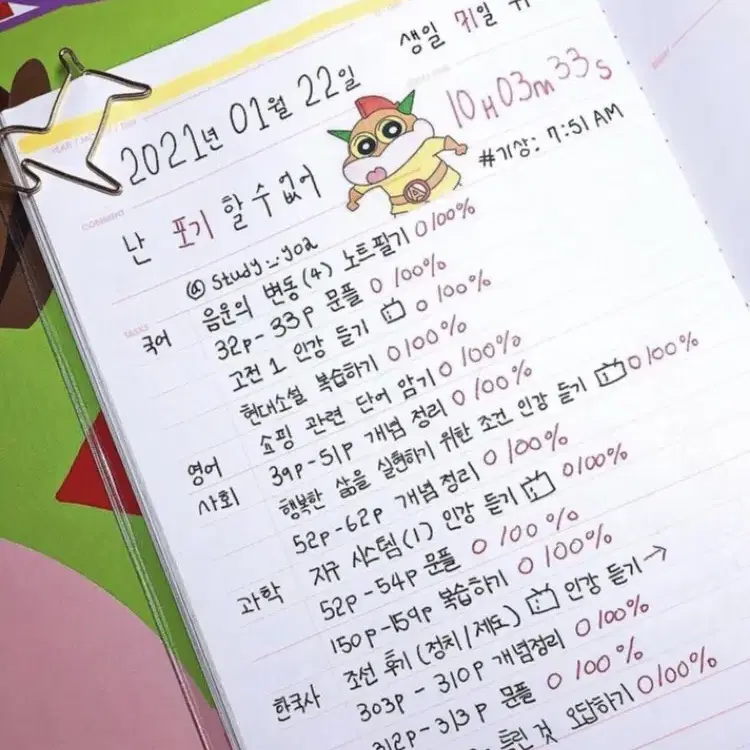 생일 커일
2021년 01월 22일
10H 03m 33s
#기상: 7:51 AM
난 포기 할 수 없어
@study._.yoz
국어 음운의 변동(4) 노트필기 O 100%
32p-33p 문풀 O 100%
고전 1 인강 듣기 O 100%
현대소설 복습하기 O 100%
영어 쇼핑 관련 단어 암기 O 100%
사회 39p-51p 개념 정리 O 100%
행복한 삶을 실현하기 위한 조건 인강 듣기 O 100%
52p-62p 개념 정리 O 100%
과학 지구 시스템(1) 인강 듣기 O 100%
52p-54p 문풀 O 100%
150p-159p 복습하기 O 100%
한국사 조선 후기(정치/제도) 인강 듣기→
303p - 310p 개념정리 O 100%
312p-313p 문풀 O 100%
틀린 것 오답하기 O 100%
TASKS